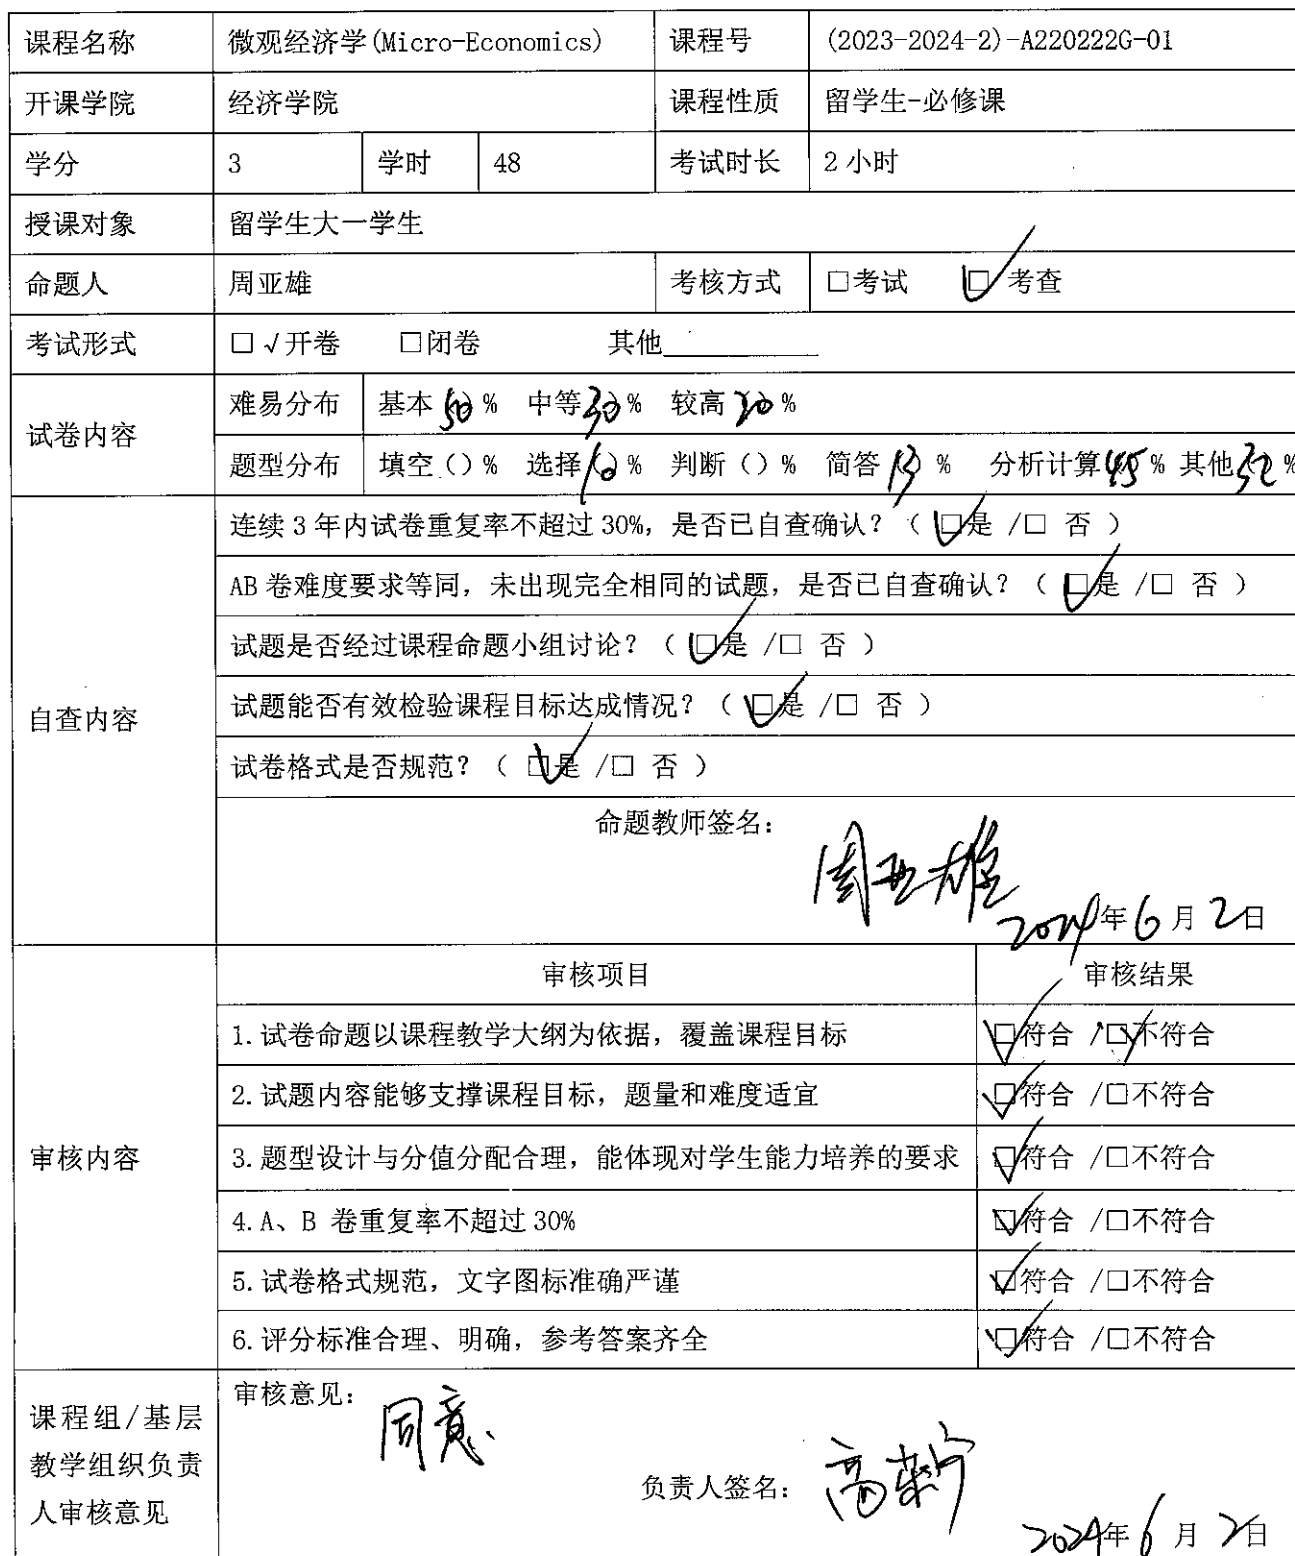 课程名称 微观经济学(Micro-Economics) 课程号 (2023-2024-2)-A220222G-01
开课学院 经济学院 课程性质 留学生-必修课
学分 3 学时 48 考试时长 2小时
授课对象 留学生大一学生
命题人 周亚雄 考核方式 □考试 □✓考查
考试形式 □√开卷 □闭卷 其他________
试卷内容 难易分布 基本(50)% 中等(30)% 较高(20)%
题型分布 填空()% 选择(10)% 判断()% 简答(13)% 分析计算(45)% 其他(32)%
自查内容
连续3年内试卷重复率不超过30%,是否已自查确认?(□✓是 /□ 否 )
AB卷难度要求等同,未出现完全相同的试题,是否已自查确认?(□✓是 /□ 否 )
试题是否经过课程命题小组讨论?(□✓是 /□ 否 )
试题能否有效检验课程目标达成情况?(□✓是 /□ 否 )
试卷格式是否规范?(□✓是 /□ 否 )
命题教师签名:
周亚雄
2024年6月2日
审核内容 审核项目 审核结果
1.试卷命题以课程教学大纲为依据,覆盖课程目标 □✓符合 /□✓不符合
2.试题内容能够支撑课程目标,题量和难度适宜 □✓符合 /□不符合
3.题型设计与分值分配合理,能体现对学生能力培养的要求 □✓符合 /□不符合
4.A、B 卷重复率不超过30% □✓符合 /□不符合
5.试卷格式规范,文字图标准确严谨 □✓符合 /□不符合
6.评分标准合理、明确,参考答案齐全 □✓符合 /□不符合
课程组/基层教学组织负责人审核意见
审核意见:
同意
负责人签名:
2024年6月2日